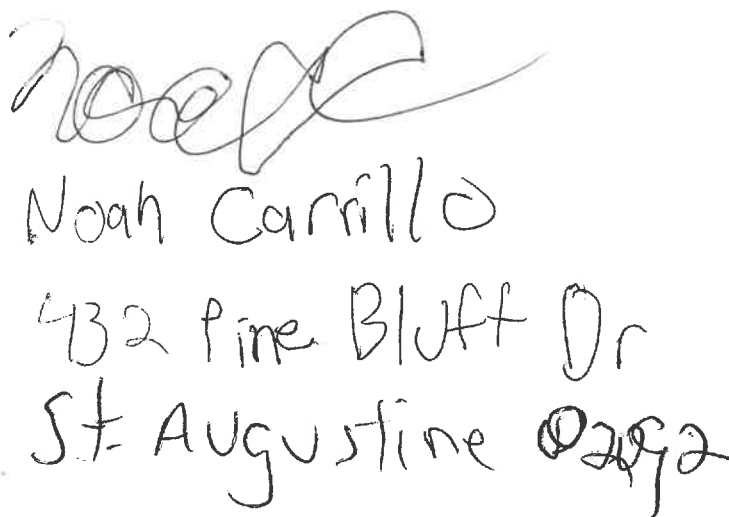 Noah Carrillo
432 Pine Bluff Dr
St. Augustine